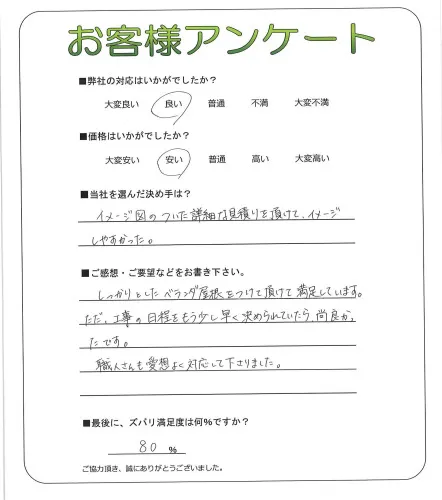 お客様アンケート
■弊社の対応はいかがでしたか？
大変良い 良い 普通 不満 大変不満
■価格はいかがでしたか？
大変安い 安い 普通 高い 大変高い
■当社を選んだ決め手は？
イメージ図のついた詳細な見積りを頂けて、イメージ
しやすかった。
■ご感想・ご要望などをお書き下さい。
しっかりとしたベランダ屋根をつけて頂けて満足しています。
ただ、工事の日程をもう少し早く決められていたら尚良かっ
たです。
職人さんも愛想よく対応して下さりました。
■最後に、ズバリ満足度は何％ですか？
80 ％
ご協力頂き、誠にありがとうございました。